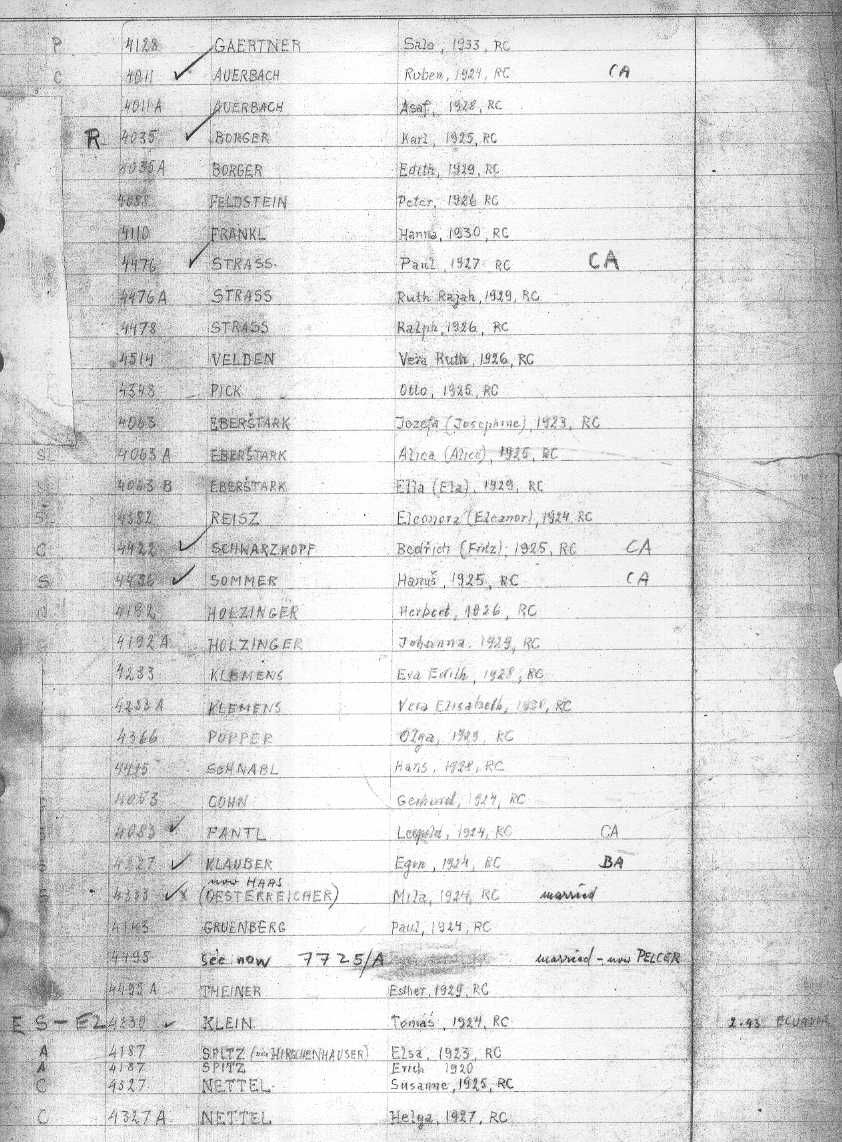 P 4128 GAERTNER Salo, 1933, RC
C 4011 ✓ AUERBACH Ruben, 1924, RC CA
4011 A AUERBACH Asaf, 1928, RC
R 4035 ✓ BORGER Karl, 1925, RC
4035 A BORGER Edith, 1929, RC
4088 FELDSTEIN Peter, 1926 RC
4110 FRANKL Hanna, 1930, RC
4476 ✓ STRASS Paul, 1927 RC CA
4476 A STRASS Ruth Rajah, 1929, RC
4478 STRASS Ralph, 1926, RC
4514 VELDEN Vera Ruth, 1926, RC
4348 PICK Otto, 1925, RC
4063 EBERŠTARK Jozefa (Josephine), 1923, RC
S 4063 A EBERŠTARK Alica (Alice), 1925, RC
4063 B EBERŠTARK Ella (Ela), 1929, RC
S 4382 REISZ Eleonora (Eleanor), 1924 RC
C 4422 ✓ SCHWARZKOPF Bedřich (Fritz), 1925, RC CA
S 4436 ✓ SOMMER Hanuš, 1925, RC CA
4192 HOLZINGER Herbert, 1926, RC
4192 A HOLZINGER Johanna, 1929, RC
4233 KLEMENS Eva Edith, 1928, RC
4233 A KLEMENS Vera Elisabeth, RC
4366 POPPER Olga, 1929, RC
4415 SCHNABL Hans, 1928, RC
4053 COHN Gerhard, 1924, RC
4083 ✓ FANTL Leopold, 1924, RC CA
4227 ✓ KLAUBER Egon, 1924, RC BA
now HAAS
4333 ✓ x (OESTERREICHER) Mila, 1924, RC married
4143 GRUENBERG Paul, 1924, RC
4495 see now 7725/A married - now PELCER
4495 A THEINER Esther, 1929, RC
E S - EZ 4230 ✓ KLEIN Tomáš, 1924, RC 2.43 ECUADOR
A 4187 SPITZ (HIRSCHENHAUSER) Elsa, 1923, RC
A 4187 SPITZ Erich 1920
C 4327 NETTEL Susanne, 1925, RC
C 4327 A NETTEL Helga, 1927, RC